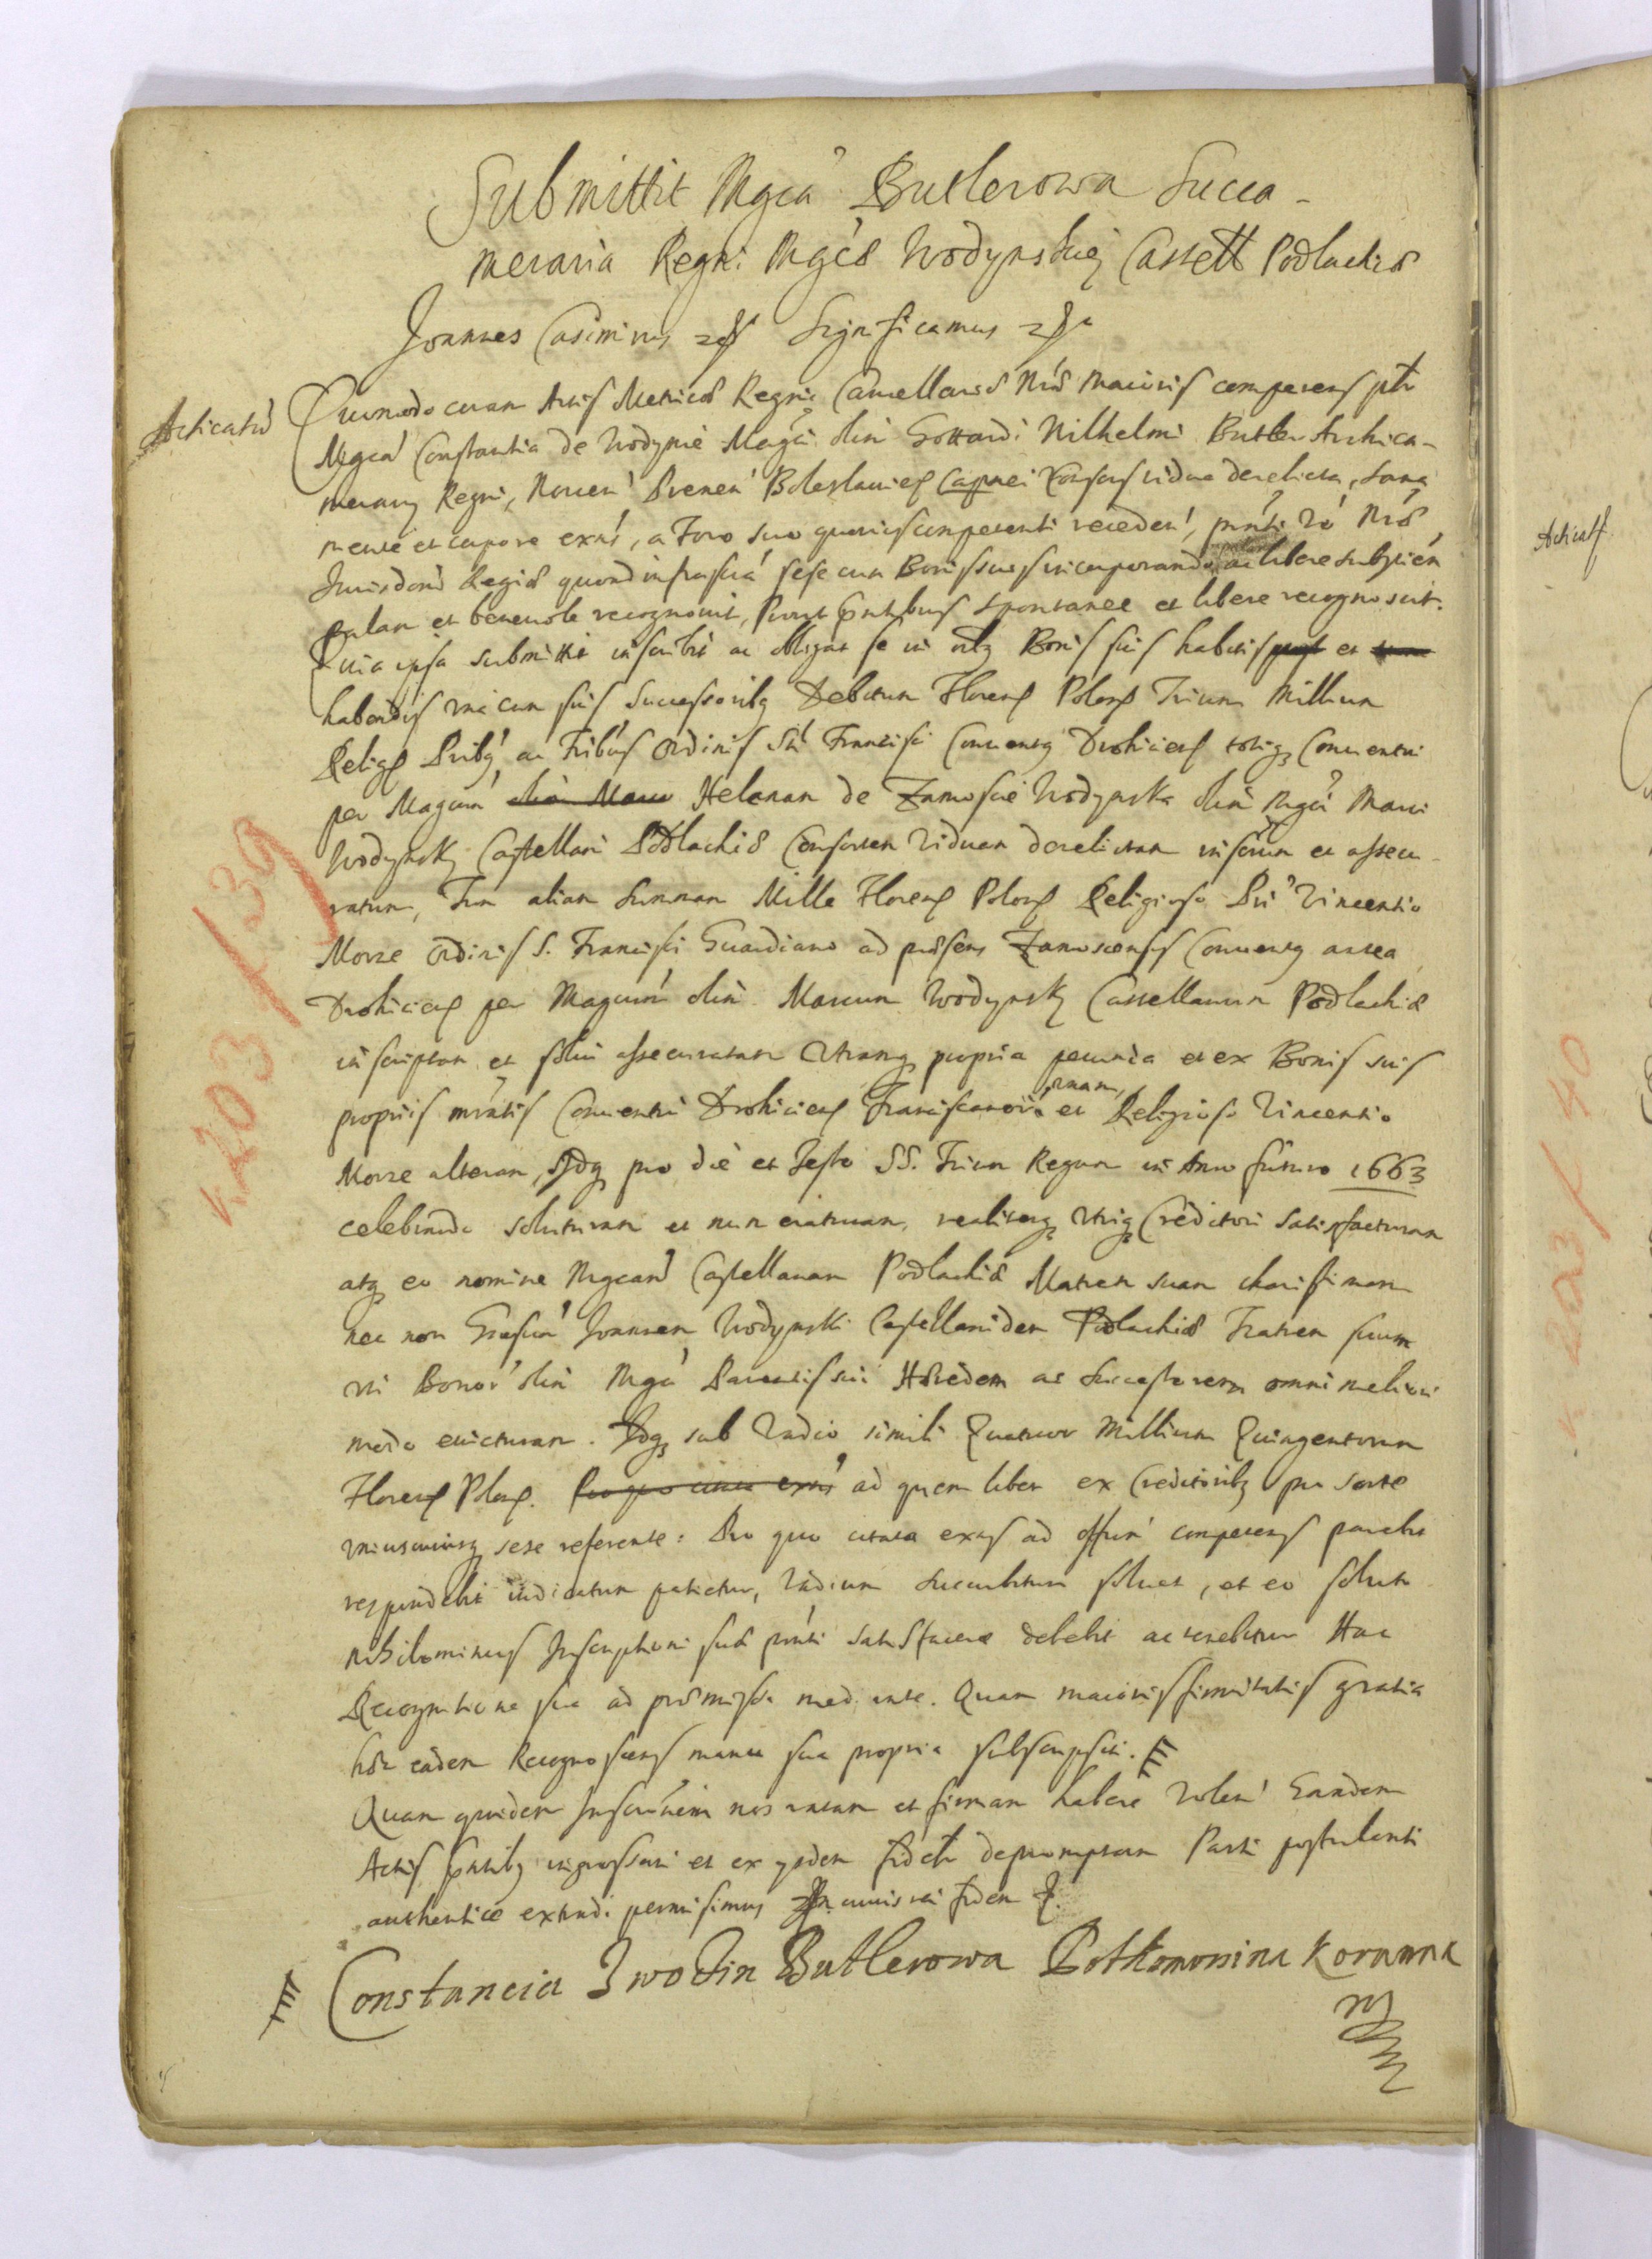 Submittit Mgca Butlerowa Succa-
meraria Regni Mgcae Wodynskiej Castell Podlachiae
Joannes Casimirus Significamus
Acticatū
Quomodo coram Actis Metrices Regni Cancellariae Nrae Maioris comparens
Mgca Constantia de Wodynie Magci olim Gottardi Wilhelmi Butler Archica-
merarij Regni, Novem Prenen Boleslaviem Capnei Consors vidua derelicta, sana
mente et corpore exns, a Foro suo quovis competenti receden, pnti vo Nrae
Jurisdoni Regiae quoad infrascta sese cum Bonis suis incorporando ac libere subijcien
palam et benevole recognovit, Prout pntibus spontanee et libere recognoscit.
Quia ipsa submittit inscribit ac obligat se in oibq Bonis suis habitis et
habendis una cum suis Successoribq Debitum Floren Polon Trium Millium
Religs Pribq ac Fribus Ordinis Sti Francisci Conventq Drohicien totiq Conventui
per Magcam Helenam de Zamoscie Wodynska olim Mgci Marci
Wodynsky Castellani Podlachiae Consortem Viduam derelictam inscrtum et assecu-
ratum, Tum aliam Summam Mille Floren Polon Religioso Pri Vincentio
Morze Ordinis S. Francisci Guardiano ad praesens Zamoscensis Conventq antea
Drohicien per Magcum olim Marcum Wodynsky Castellanum Podlachiae
inscriptam et solui assecuratam Utramq propria pecunia et ex Bonis suis
proprijs mrntis Conventui Drohicien Franciscanorū unam, et Religioso Vincentio
Morze alteram, Idq pro die et Festo SS. Trium Regum in Anno futuro 1663
celebrando soluturam et numeraturam, realiterq Utriq Creditori satisfacturam
atq eo nomine Mgcam Castellanam Podlachiae Matrem suam charissimam
nec non Grosum Joannem Wodynski Castellanidem Podlachiae Fratrem suum
uti Bonor olim Mgci Parentis sui Haeredem ac Successorem omni meliori
modo evicturam. Idq sub Vadio simili Quatuor Millium Quingentorum
Floren Polon. ad quem libet ex Creditoribq pro sorte
uniuscuiusq sese referente: Pro quo citata exns ad offum competens parebit
respondebit iudicatum patietur, Vadium succubitum soluet, et eo soluto
nihilominus Inscriptioni suae pnti satisfacere debebit ac tenebitur Hac
Recognitione sua ad praemissa mediante. Quam maioris firmitatis gratia
haec eadem Recognoscens manu sua propria subscripsit.
Quam quidem Inscrnem nos ratam et firmam habere volen Eandem
Actis pntibq ingrossari et ex ijsdem fideli depromptam Parti postulanti
authentice extradi permisimus In cuius rei fidem
Constancia Zwodin Butlerowa Potkomorsina Koronna